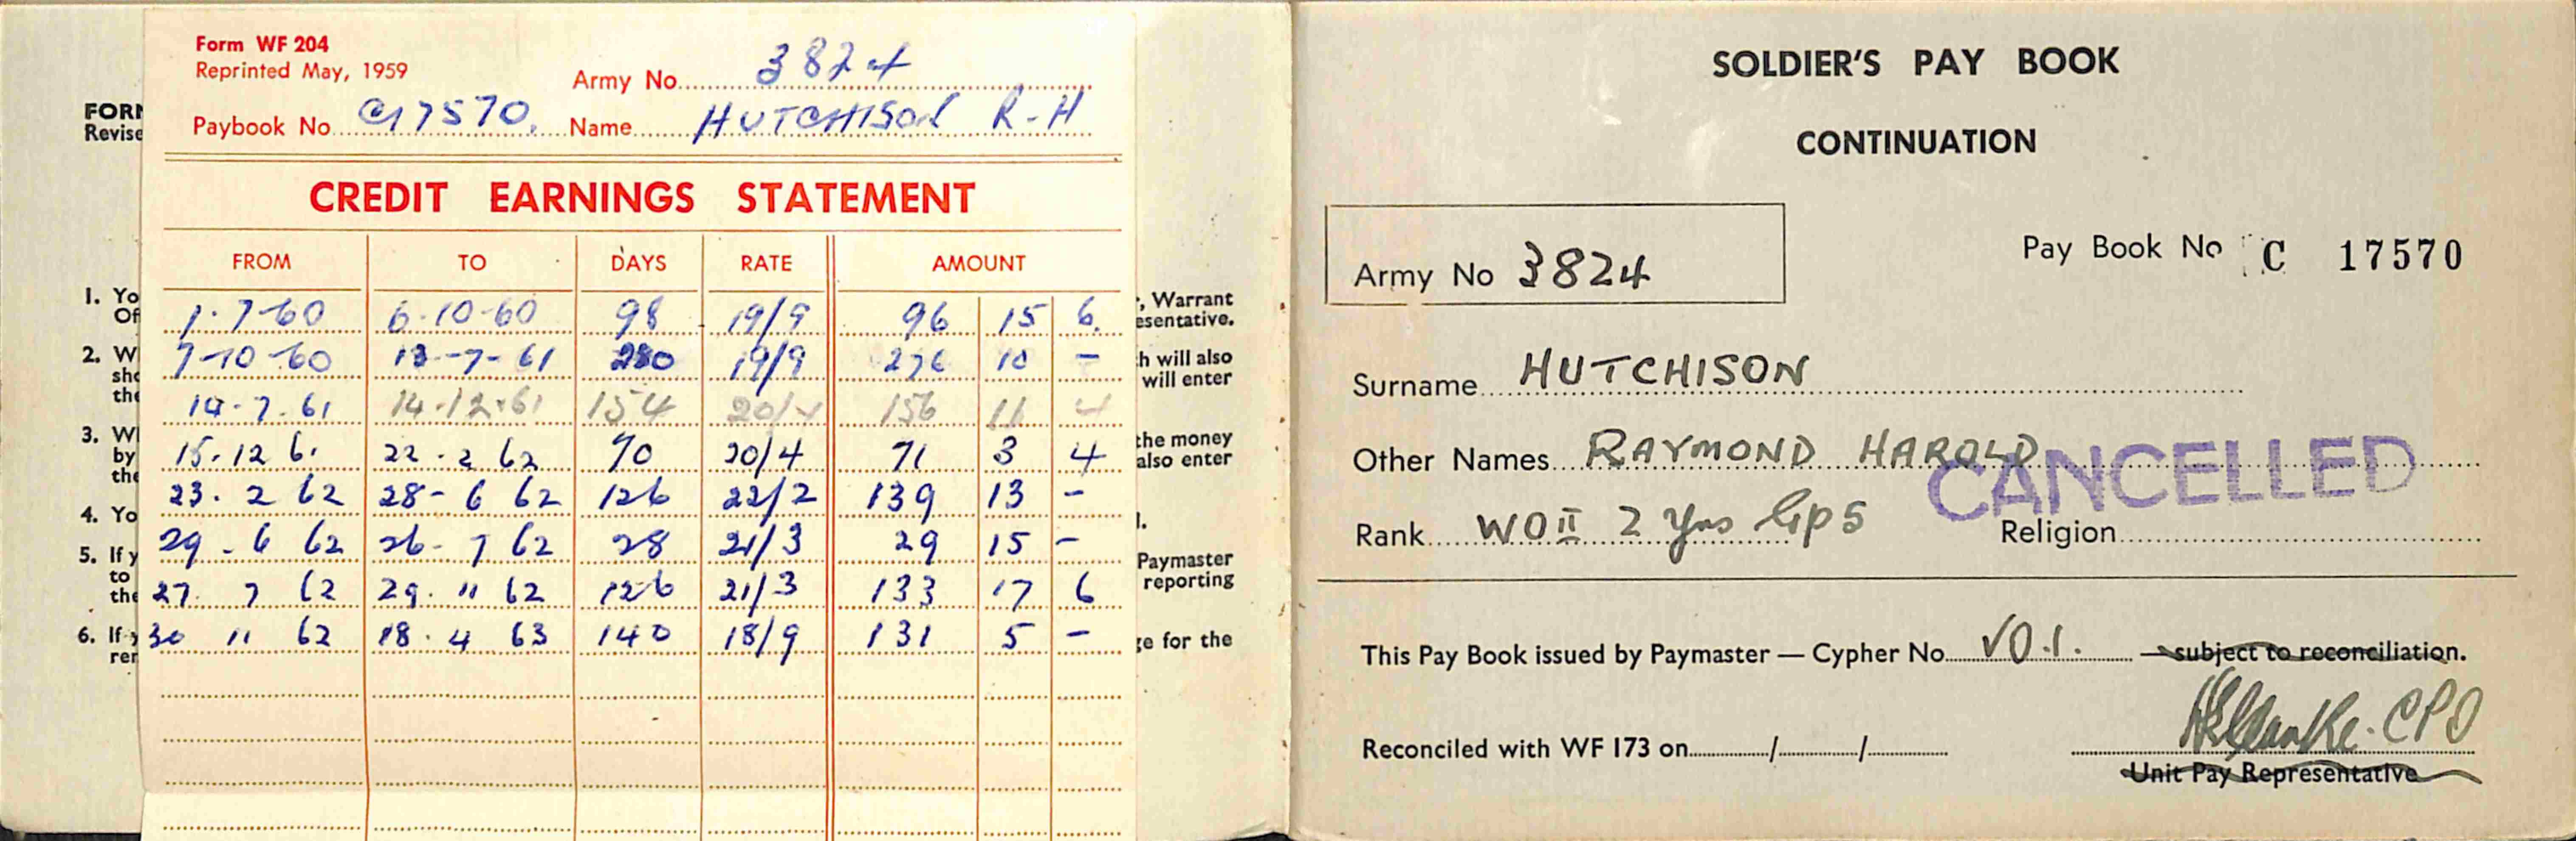 Form WF 204
Reprinted May, 1959
Army No. 3824
Paybook No. C17570. Name HUTCHISON R-H
CREDIT EARNINGS STATEMENT
FROM TO DAYS RATE AMOUNT
1-7-60 6-10-60 98 19/9 96 15 6.
7-10-60 13-7-61 280 19/9 276 10 -
14-7-61 14-12-61 154 20/4 156 11 4
15.12 61 22.2 62 70 20/4 71 3 4
23.2 62 28-6 62 126 22/2 139 13 -
29-6 62 26-7 62 28 21/3 29 15 -
27 7 62 29.11 62 126 21/3 133 17 6
30 11 62 18.4 63 140 18/9 131 5 -
FORM
Revise
1. Yo
Of
2. W
sho
the
3. W
by
the
4. Yo
5. If y
to
the
6. If y
rer
, Warrant
esentative.
h will also
will enter
the money
also enter
l.
Paymaster
reporting
ge for the
SOLDIER'S PAY BOOK
CONTINUATION
Army No 3824
Pay Book No C 17570
Surname HUTCHISON
Other Names RAYMOND HAROLD
CANCELLED
Rank WO II 2 yrs Gp 5 Religion
This Pay Book issued by Paymaster — Cypher No. VO.1. — subject to reconciliation.
Reconciled with WF 173 on / /
CPO
Unit Pay Representative